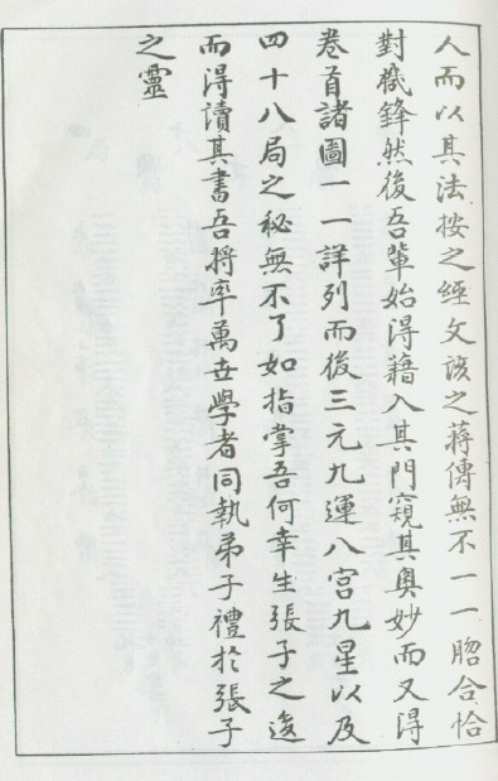 人而以其法按之經文該之蔣傳無不一一䀢合恰
對機鋒然後吾輩始得藉入其門窺其奧妙而又得
卷首諸圖一一詳列而後三元九運八宮九星以及
四十八局之秘無不了如指掌吾何幸生張子之後
而得讀其書吾將率萬世學者同執弟子禮於張子
之靈